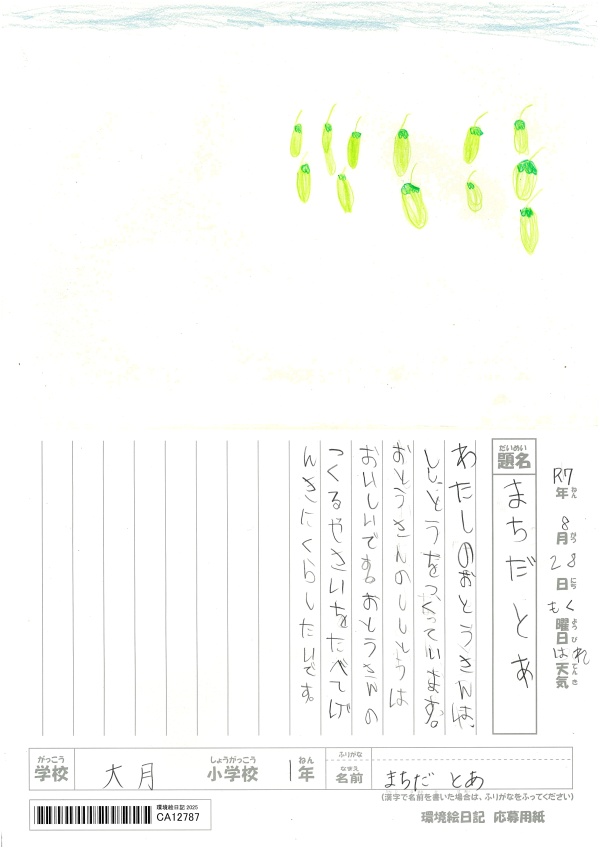 R7年ねん
8月がつ
28日にち
もく曜日ようび
はれ天気てんき
だいめい
題名
まちだとあ
わたしのおとうさんは、
ししとうをつくっています。
おとうさんのししとうは
おいしいです。おとうさんの
つくるやさいをたべてげ
んきにくらしたいです。
がっこう
学校
大月
しょうがっこう
小学校
1
ねん
年
ふりがな
なまえ
名前
まちだ とあ
(漢字で名前を書いた場合は、ふりがなをふってください)
環境絵日記 2025
CA12787
環境絵日記 応募用紙